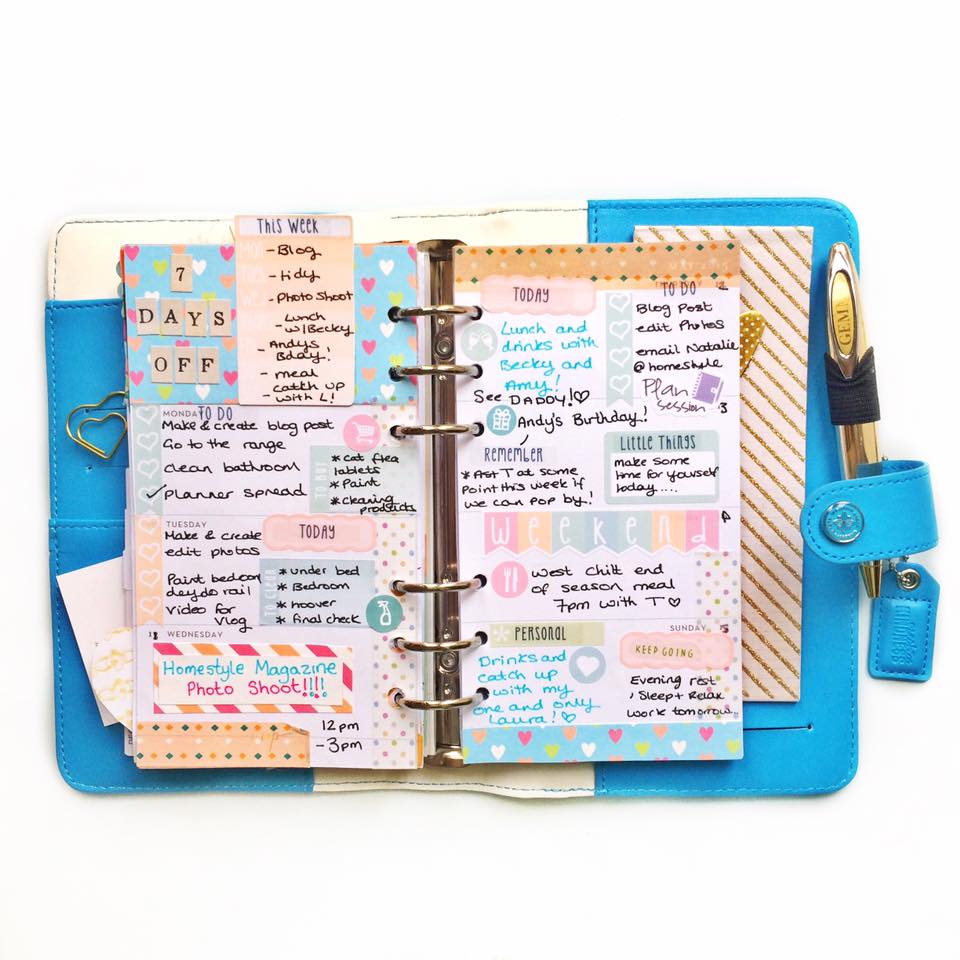 This Week
- Blog
- tidy
- Photo Shoot
- Lunch
w/Becky
- Andys
Bday!
- meal
catch up
- with L!
7
DAYS
OFF
MONDAY
TO DO
Make & create blog post
Go to the range
clean bathroom
✓ planner spread
TO BUY
* cat flea
tablets
* Paint
* cleaning
products
TUESDAY
TODAY
Make & create
edit photos
Paint bedroom
video for
vlog
TO CLEAN
* under bed
* Bedroom
* hoover
* final check
WEDNESDAY
Homestyle Magazine
Photo Shoot!!!!
12pm
- 3pm
TODAY
Lunch and
drinks with
Becky and
Amy!
See DADDY! ♡
TO DO
Blog Post
edit Photos
email Natalie
@ homestyle
Plan
session
Andy's Birthday!
REMEMBER
* Ask T at some
Point this week if
we can pop by!
Little Things
make some
time for yourself
today....
weekend
West Chilt end
of season meal
7pm with T ♡
PERSONAL
Drinks and
catch up
with my
one and only
Laura! ♡
SUNDAY
KEEP GOING
Evening rest
, Sleep + Relax
work tomorrow...
GEMMA